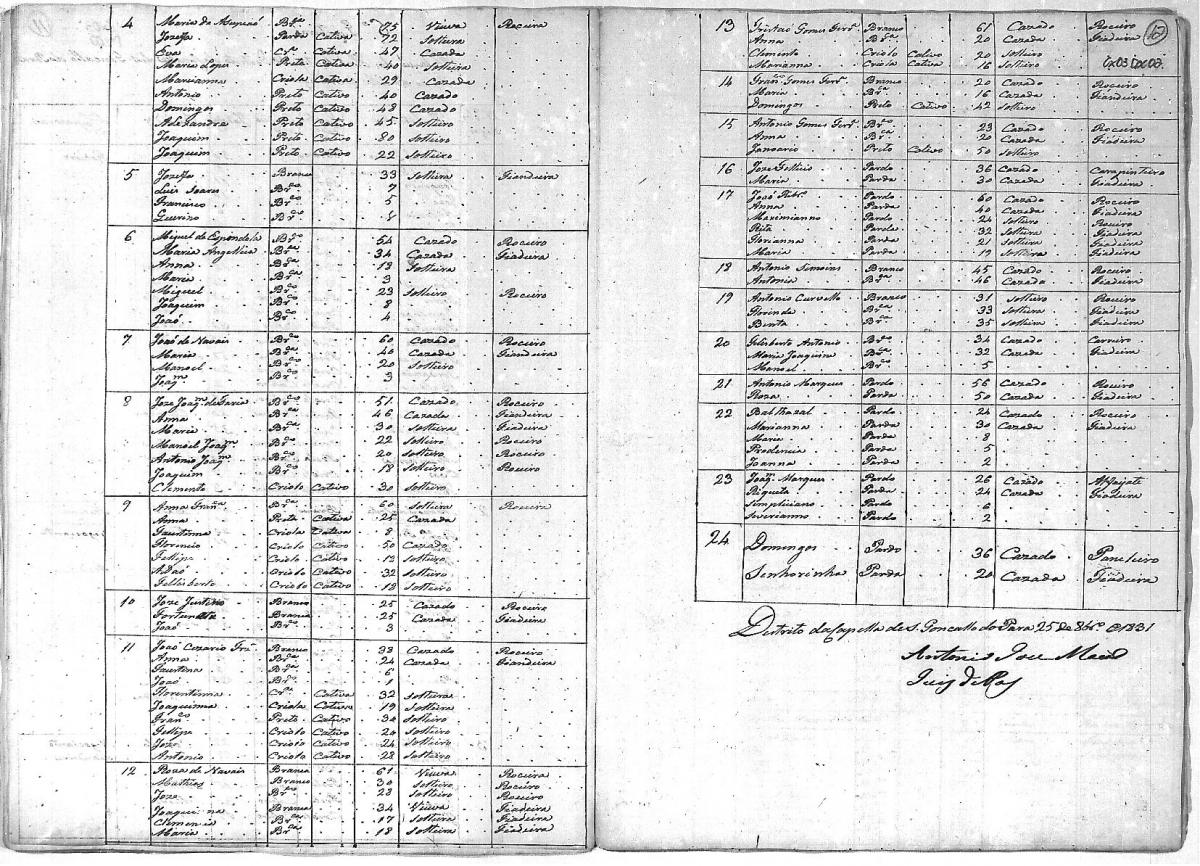 4 Maria da Asumpçaõ Br.ca 75 Viuva Roceira
Jozefa Parda Cativa 72 Solteira
Eva Cr.la Cativa 47 Cazada
Maria Lopes Preta Cativa 40 Solteira
Marcianna Criola Cativa 29 Cazada
Antonio Preto Cativo 40 Cazado
Domingos Preto Cativo 48 Cazado
Alexandre Preto Cativo 45 Solteiro
Joaquim Preto Cativo 80 Solteiro
Joaquim Preto Cativo 22 Solteiro
5 Jozefa Branca 33 Solteira Fiandeira
Luis Soares Br.co 7
Francisco Br.co 5
Br.co
6 Miguel de Espindola Br.co 54 Cazado Roceiro
Maria Angellica Br.ca 34 Cazada Fiadeira
Anna Br.ca 13 Solteira
Maria Br.ca 3
Miguel Br.co 23 Solteiro Roceiro
Joaquim Br.co 8
Joaõ Br.co 4
7 Joaõ de Navais Br.co 60 Cazado Roceiro
Maria Br.ca 40 Cazada Fiandeira
Manoel Br.co 20 Solteiro
Joaq.m Br.co 3
8 Joze Joaq.m de Faria Br.co 51 Cazado Roceiro
Anna Br.ca 46 Cazada Fiandeira
Maria Br.ca 30 Solteira Fiadeira
Manoel Joaq.m Br.co 22 Solteiro Roceiro
Antonio Joaq.m Br.co 20 Solteiro Roceiro
Joaquim Br.co 18 Solteiro Roceiro
Clemente Criolo Cativo 30 Solteiro
9 Anna Fran.ca Br.ca 60 Solteira Roceira
Anna Preta Cativa 25 Cazada
Faustinna Criola Cativa 8
Florencio Criolo Cativo 50 Cazado
Fellipe Criolo Cativo 13 Solteiro
Adaõ Criolo Cativo 32 Solteiro
Fellisberto Criolo Cativo 18 Solteiro
10 Joze Justino Branco 25 Cazado Roceiro
Fortunata Branca 25 Cazada Fiadeira
Joaõ Br.co 3
11 Joaõ Cezario Branco 33 Cazado Roceiro
Anna Br.ca 24 Cazada Fiandeira
Faustina Br.ca 6
Joaõ Br.co 1
Florentinna Cr.la Cativa 32 Solteira
Joaquinna Criola Cativa 19 Solteira
Fran.co Preto Cativo 30 Solteiro
Fellipe Criolo Cativo 20 Solteiro
Joze Criolo Cativo 24 Solteiro
Antonio Criolo Cativo 28 Solteiro
12 Roza de Navais Branca 61 Viuva Roceira
Mathias Branco 30 Solteiro Roceiro
Joze Br.co 28 Solteiro Roceiro
Joaquinna Branca 34 Viuva Fiadeira
Clemencia Br.ca 17 Solteira Fiadeira
Maria Br.ca 18 Solteira Fiadeira
13 Tristaõ Gomes Branco 61 Cazado Roceiro
Anna Br.ca 20 Cazada Fiadeira
Clemente Criolo Cativo 20 Solteiro
Marianna Criola Cativa 16 Solteira
Cx03 Doc08
14 Fran.co Gomes Branco 20 Cazado Roceiro
Maria Br.ca 16 Cazada Fiandeira
Domingos Preto Cativo 42 Solteiro
15 Antonio Gomes Br.co 23 Cazado Roceiro
Anna Br.ca 20 Cazada Fiadeira
Januario Preto Cativo 50 Solteiro
16 Joze Pardo 36 Cazado Carapinteiro
Maria Parda 30 Cazada Fiadeira
17 Joze Ribr.o Pardo 60 Cazado Roceiro
Anna Parda 40 Cazada Fiadeira
Maximianno Pardo 24 Solteiro Roceiro
Rita Parda 32 Solteira Fiadeira
Florianna Parda 21 Solteira Fiadeira
Maria Parda 19 Solteira Fiadeira
18 Antonio Simoins Branco 45 Cazado Roceiro
Antonia Br.ca 46 Cazada Fiadeira
19 Antonio Curvello Branco 31 Solteiro Roceiro
Florinda Br.ca 33 Solteira Fiadeira
Benta Br.ca 35 Solteira Fiadeira
20 Felisberto Antonio Br.co 34 Cazado Carreiro
Maria Joaquina Br.ca 32 Cazada Fiadeira
Manoel Br.co 5
21 Antonio Marques Pardo 56 Cazado Roceiro
Roza Parda 50 Cazada Fiadeira
22 Balthazal Pardo 24 Cazado Roceiro
Marianna Parda 30 Cazada Fiadeira
Maria Parda 8
Prodencia Parda 5
Joanna Parda 2
23 Joaq.m Marques Pardo 26 Cazado Alfaiate
Riqueta Parda 24 Cazada Fiadeira
Simpliciano Pardo 6
Severianno Pardo 2
24 Domingos Pardo 36 Cazado Paneleiro
Senhorinha Parda 20 Cazada Fiadeira
Destrito da Capella de S. Goncallo do Para 25 de 8br.o de 1831
Antonio Joze
Juis de Pas